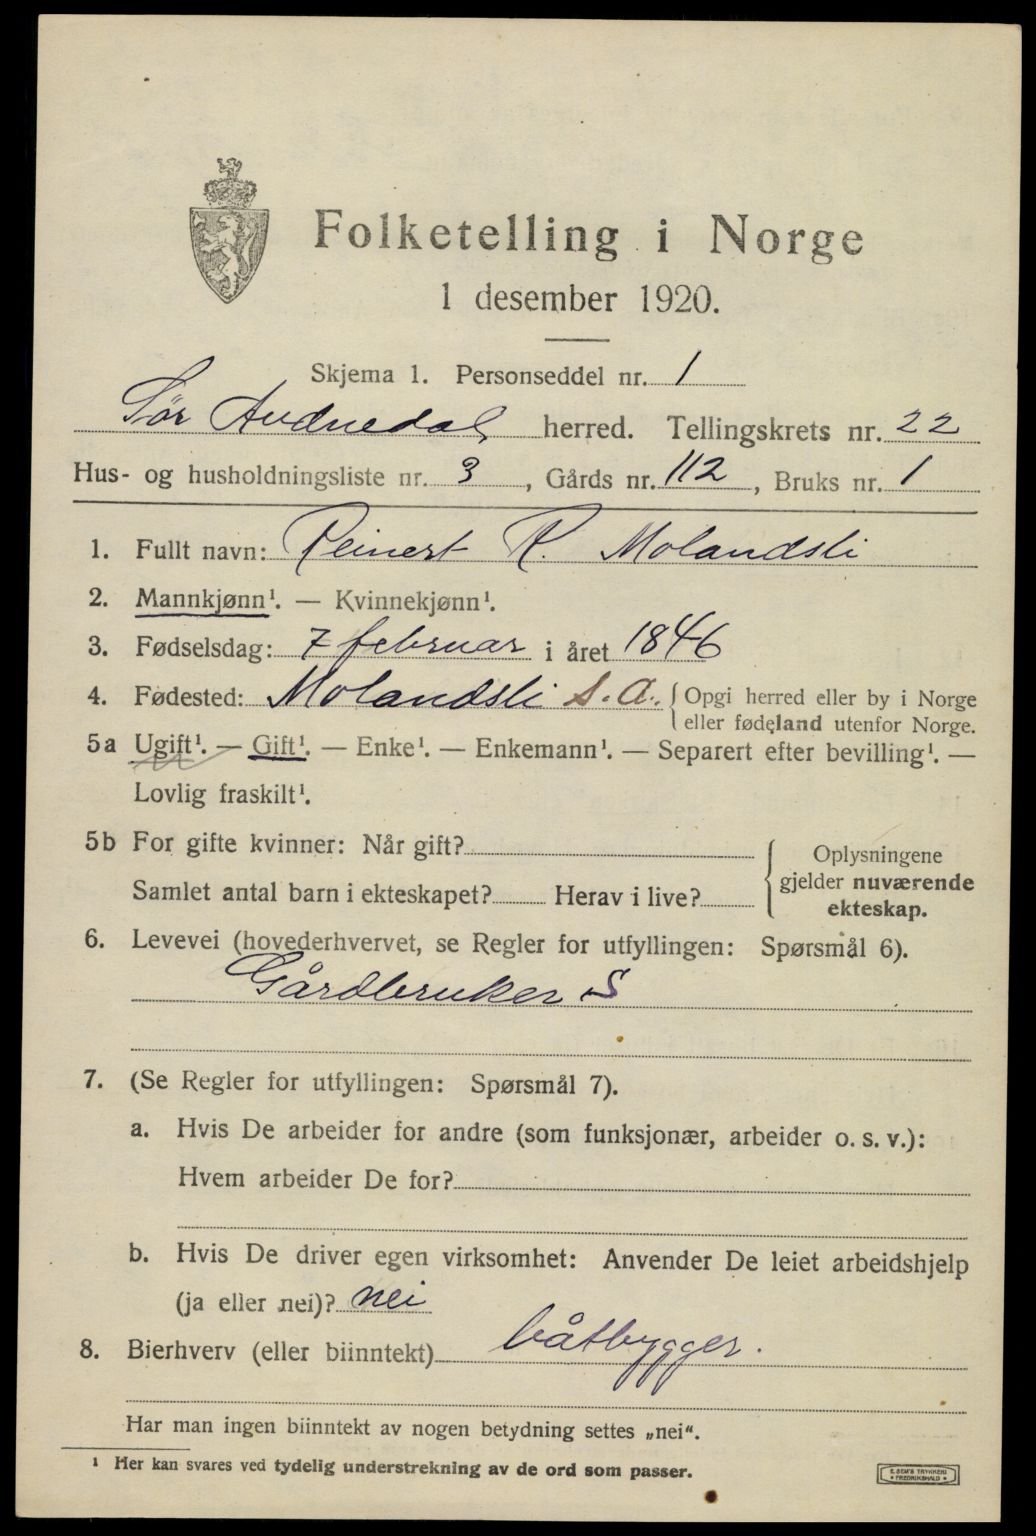 Folketelling i Norge
1 desember 1920.
Skjema 1. Personseddel nr. 1
Sør Audnedal herred. Tellingskrets nr. 22
Hus- og husholdningsliste nr. 3, Gårds nr. 112, Bruks nr. 1
1. Fullt navn: Reinert R. Molandsli
2. Mannkjønn¹. — Kvinnekjønn¹.
3. Fødselsdag: 7 februar i året 1846
4. Fødested: Molandsli S.A. Opgi herred eller by i Norge
eller fødeland utenfor Norge.
5a Ugift¹. — Gift¹. — Enke¹. — Enkemann¹. — Separert efter bevilling¹. —
Lovlig fraskilt¹.
5b For gifte kvinner: Når gift?
Samlet antal barn i ekteskapet? Herav i live?
Oplysningene
gjelder nuværende
ekteskap.
6. Levevei (hovederhvervet, se Regler for utfyllingen: Spørsmål 6).
Gårdbruker S
7. (Se Regler for utfyllingen: Spørsmål 7).
a. Hvis De arbeider for andre (som funksjonær, arbeider o. s. v.):
Hvem arbeider De for?
b. Hvis De driver egen virksomhet: Anvender De leiet arbeidshjelp
(ja eller nei)? nei
8. Bierhverv (eller biinntekt) båtbygger.
Har man ingen biinntekt av nogen betydning settes „nei“.
¹ Her kan svares ved tydelig understrekning av de ord som passer.
E. SEM'S TRYKKERI
• FREDRIKSHALD •